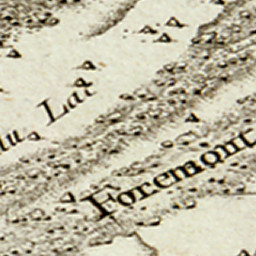 Lac
Foremont